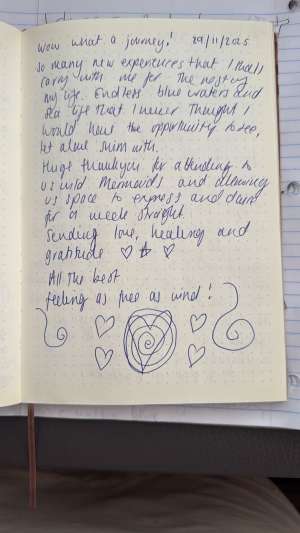 wow what a journey! 29/11/2025
so many new experiences that I shall
carry with me for the rest of
my life. Endless blue waters and
sea life that I never thought I
would have the opportunity to see,
let alone swim with.
Huge thankyou for attending to
us wild mermaids and allowing
us space to express and
for a week straight.
Sending love, healing and
gratitude ♡ ☆ ♡
All the best
feeling as free as wind!